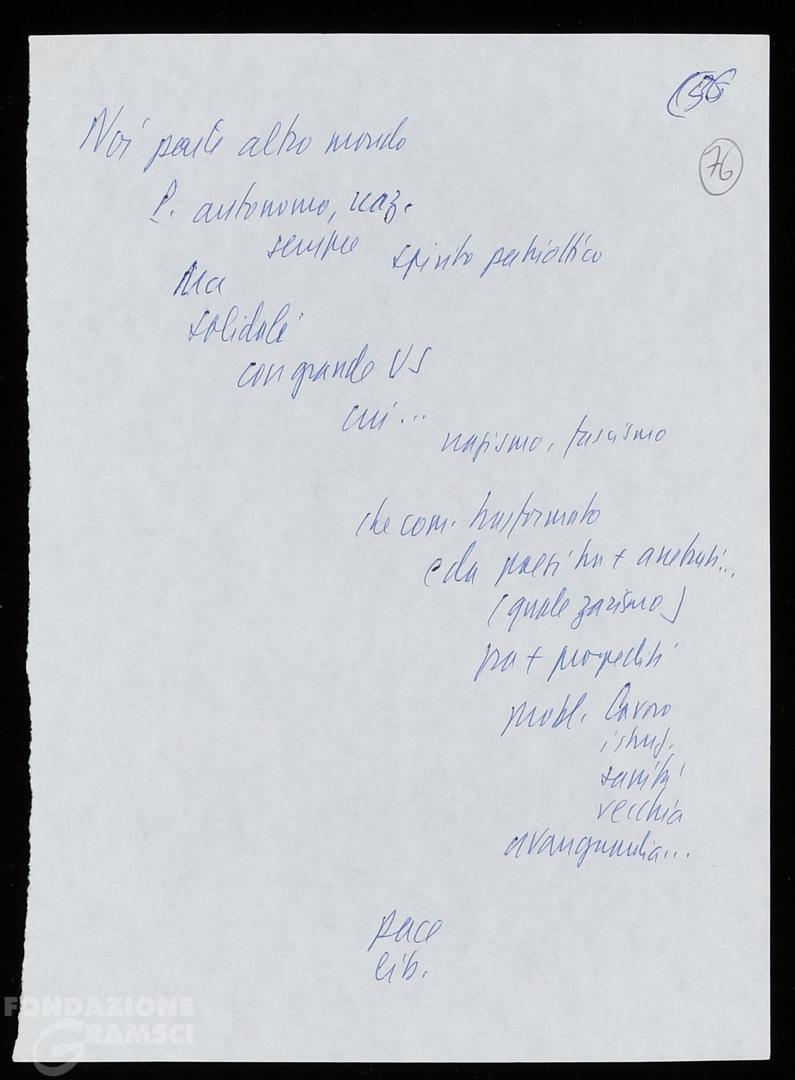 (56
76
Noi parte altro mondo
P. autonomo, naz.
sempre spirito patriottico
Ma
solidale
con grande US
cui...
nazismo, fascismo
che com. trasformato
e da paesi tra + arretrati...
(quale zarismo)
fra + progrediti
probl. lavoro
istruz.
sanità
vecchia
avanguardia...
pace
lib.
FONDAZIONE
GRAMSCI
onlus